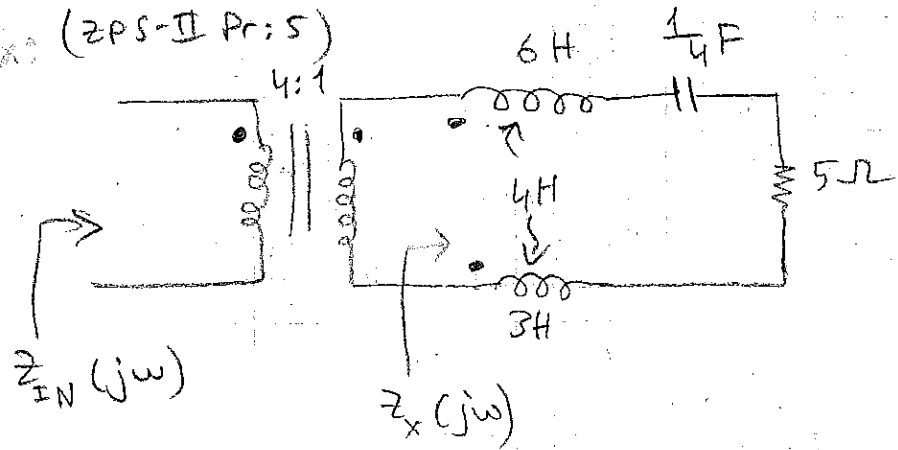 (ZPS-II Pr: 5)
4:1
6 H
1/4 F
5Ω
4H
3H
Z_IN (jω)
Z_x (jω)